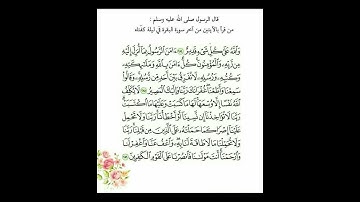 قال الرسول صلى الله عليه وسلم :
من قرأ بالآيتين من آخر سورة البقرة في ليلة كفتاه
وَاللَّهُ عَلَىٰ كُلِّ شَيْءٍ قَدِيرٌ ءَامَنَ الرَّسُولُ بِمَا أُنزِلَ إِلَيْهِ
مِن رَّبِّهِ وَالْمُؤْمِنُونَ كُلٌّ ءَامَنَ بِاللَّهِ وَمَلَٰٓئِكَتِهِ
وَكُتُبِهِ وَرُسُلِهِ لَا نُفَرِّقُ بَيْنَ أَحَدٍ مِّن رُّسُلِهِ وَقَالُوا
سَمِعْنَا وَأَطَعْنَا غُفْرَانَكَ رَبَّنَا وَإِلَيْكَ الْمَصِيرُ
لَا يُكَلِّفُ اللَّهُ نَفْسًا إِلَّا وُسْعَهَا لَهَا مَا كَسَبَتْ وَعَلَيْهَا مَا اكْتَسَبَتْ
رَبَّنَا لَا تُؤَاخِذْنَا إِن نَّسِينَا أَوْ أَخْطَأْنَا رَبَّنَا وَلَا تَحْمِلْ
عَلَيْنَا إِصْرًا كَمَا حَمَلْتَهُ عَلَى الَّذِينَ مِن قَبْلِنَا رَبَّنَا
وَلَا تُحَمِّلْنَا مَا لَا طَاقَةَ لَنَا بِهِ وَاعْفُ عَنَّا وَاغْفِرْ لَنَا
وَارْحَمْنَا أَنتَ مَوْلَانَا فَانصُرْنَا عَلَى الْقَوْمِ الْكَافِرِينَ